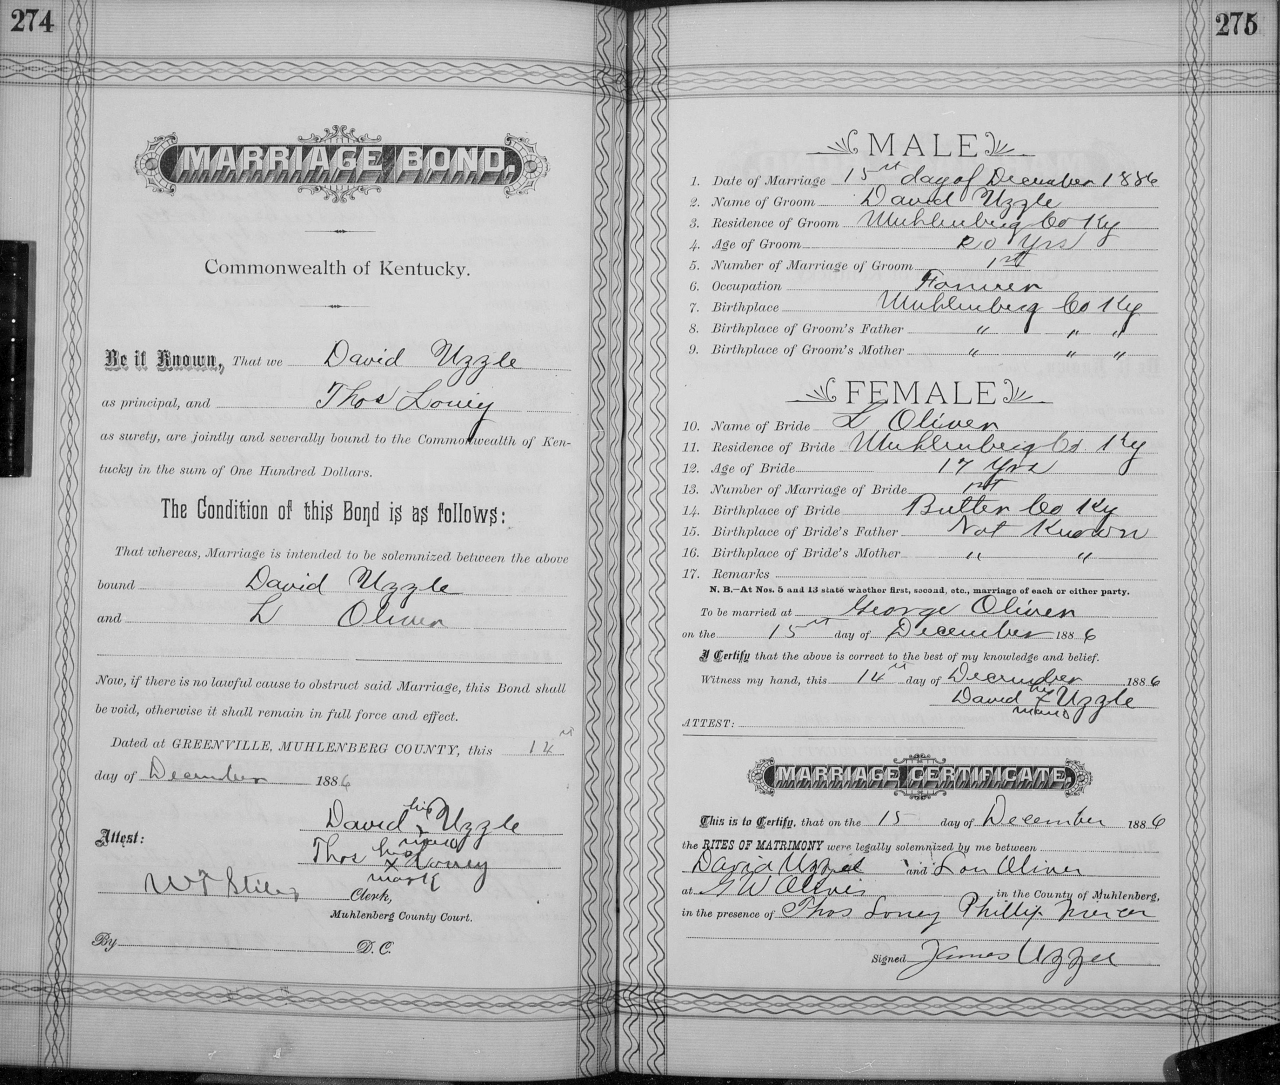 274
MARRIAGE BOND.
Commonwealth of Kentucky.
Be it Known, That we David Uzzle
as principal, and Thos Loney
as surety, are jointly and severally bound to the Commonwealth of Ken-
tucky in the sum of One Hundred Dollars.
The Condition of this Bond is as follows:
That whereas, Marriage is intended to be solemnized between the above
bound David Uzzle
and L Oliver
Now, if there is no lawful cause to obstruct said Marriage, this Bond shall
be void, otherwise it shall remain in full force and effect.
Dated at GREENVILLE, MUHLENBERG COUNTY, this 14
day of December 1886
his
David x Uzzle
mark
Attest:
his
Thos x Loney
mark
Clerk,
Muhlenberg County Court.
By D. C.
275
MALE
1. Date of Marriage 15st day of December 1886
2. Name of Groom David Uzzle
3. Residence of Groom Muhlenberg Co Ky
4. Age of Groom 20 Yrs
5. Number of Marriage of Groom 1st
6. Occupation Farmer
7. Birthplace Muhlenberg Co Ky
8. Birthplace of Groom's Father " " "
9. Birthplace of Groom's Mother " " "
FEMALE
10. Name of Bride L Oliver
11. Residence of Bride Muhlenberg Co Ky
12. Age of Bride 17 Yrs
13. Number of Marriage of Bride 1st
14. Birthplace of Bride Butler Co Ky
15. Birthplace of Bride's Father Not Known
16. Birthplace of Bride's Mother " "
17. Remarks
N. B.—At Nos. 5 and 13 state whether first, second, etc., marriage of each or either party.
To be married at George Oliver
on the 15st day of December 1886
I Certify that the above is correct to the best of my knowledge and belief.
Witness my hand, this 14st day of December 1886
his
David x Uzzle
mark
ATTEST:
MARRIAGE CERTIFICATE.
This is to Certify, that on the 15 day of December 1886
the RITES OF MATRIMONY were legally solemnized by me between
David Uzzel and Lou Oliver
at G W Oliver in the County of Muhlenberg,
in the presence of Thos Loney Phillip
Signed James Uzzel